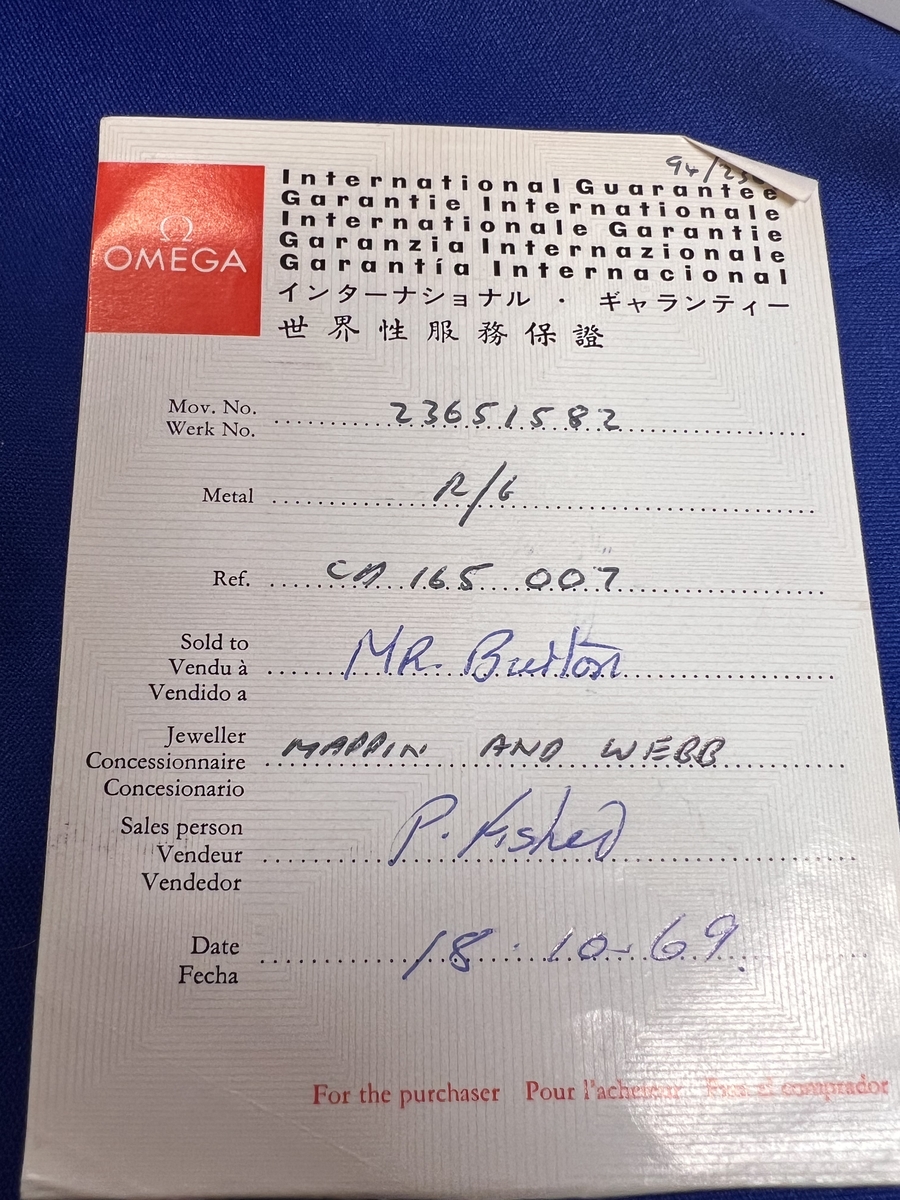 94/23
Ω
OMEGA
International Guarantee
Garantie Internationale
Internationale Garantie
Garanzia Internazionale
Garantía Internacional
インターナショナル・ギャランティー
世界性服務保證
Mov. No.
Werk No.
23651582
Metal R/G
Ref. CD 165 007
Sold to
Vendu à
Vendido a
MR. Burton
Jeweller
Concessionnaire
Concesionario
MAPPIN AND WEBB
Sales person
Vendeur
Vendedor
P. Fisher
Date
Fecha
18.10-69.
For the purchaser Pour l'acheteur Para el comprador